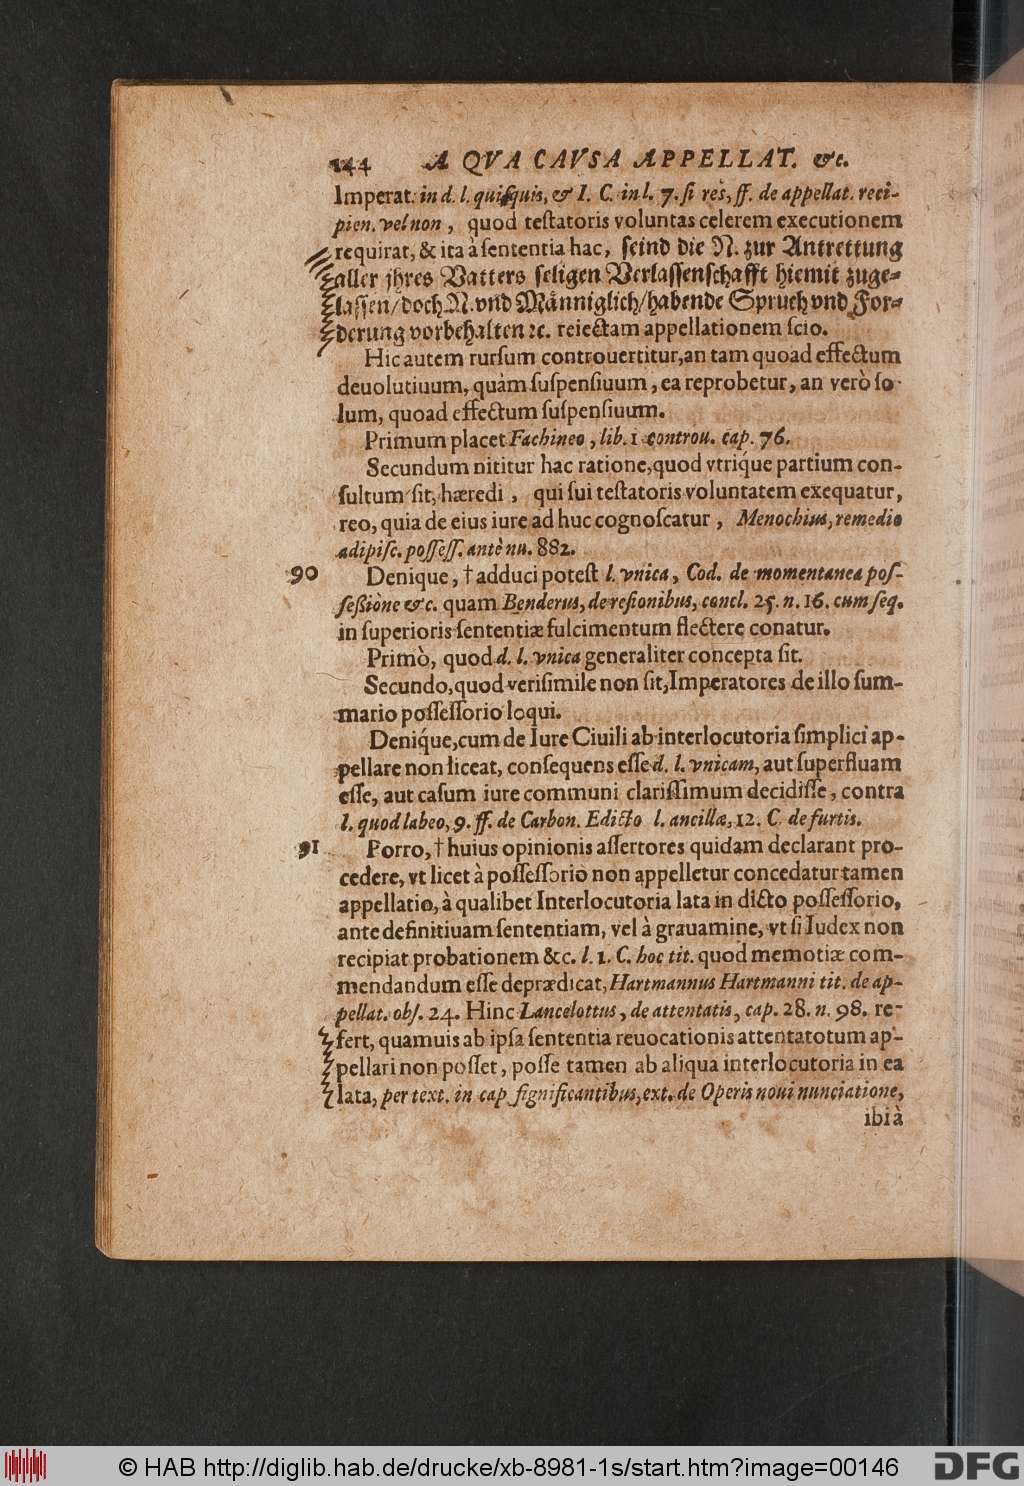 144 A QVA CAVSA APPELLAT. &c.
Imperat. in d. l. quisquis, & I. C. in l. 7. ſi res, ff. de appellat. reci-
pien. vel non, quod teſtatoris voluntas celerem executionem
requirat, & ita à ſententia hac, ſeind die N. zur Antrettung
aller jhres Vatters ſeligen Verlaſſenſchafft hiemit zuge-
laſſen/ doch N. vnd Maͤnniglich/ habende Spruch vnd For-
derung vorbehalten ꝛc. reiectam appellationem ſcio.
Hic autem rurſum controuertitur, an tam quoad effectum
deuolutiuum, quàm ſuſpenſiuum, ea reprobetur, an verò ſo-
lum, quoad effectum ſuſpenſiuum.
Primum placet Fachineo, lib. 1 controu. cap. 76.
Secundum nititur hac ratione, quod vtriq́ue partium con-
ſultum ſit, hæredi, qui ſui teſtatoris voluntatem exequatur,
reo, quia de eius iure ad huc cognoſcatur, Menochius, remedio
adipiſc. poſſeſſ. antè nu. 882.
90 Denique, † adduci poteſt l. vnica, Cod. de momentanea poſ-
ſeßione &c. quam Benderus, de reſionibus, concl. 25. n. 16. cum ſeq.
in ſuperioris ſententiæ fulcimentum flectere conatur.
Primò, quod d. l. vnica generaliter concepta ſit.
Secundo, quod veriſimile non ſit, Imperatores de illo ſum-
mario poſſeſſorio loqui.
Deniq́ue, cum de Iure Ciuili ab interlocutoria ſimplici ap-
pellare non liceat, conſequens eſſe d. l. vnicam, aut ſuperfluam
eſſe, aut caſum iure communi clariſſimum decidiſſe, contra
l. quod labeo, 9. ff. de Carbon. Edicto l. ancillæ, 12. C. de furtis.
91 Porro, † huius opinionis aſſertores quidam declarant pro-
cedere, vt licet à poſſeſſorio non appelletur concedatur tamen
appellatio, à qualibet Interlocutoria lata in dicto poſſeſſorio,
ante definitiuam ſententiam, vel à grauamine, vt ſi Iudex non
recipiat probationem &c. l. 1. C. hoc tit. quod memotiæ com-
mendandum eſſe deprædicat, Hartmannus Hartmanni tit. de ap-
pellat. obſ. 24. Hinc Lancelottus, de attentatis, cap. 28. n. 98. re-
fert, quamuis ab ipſa ſententia reuocationis attentatotum ap-
pellari non poſſet, poſſe tamen ab aliqua interlocutoria in ea
lata, per text. in cap ſignificantibus, ext. de Operis noui nunciatione,
ibi à
© HAB http://diglib.hab.de/drucke/xb-8981-1s/start.htm?image=00146
DFG